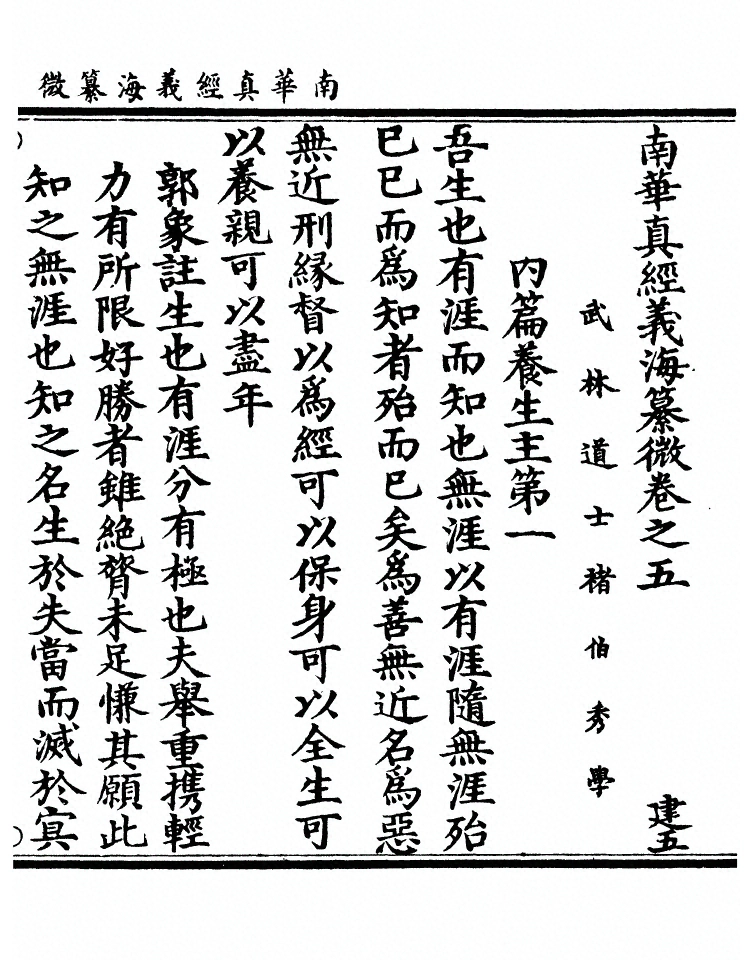 南華真經義海纂微
南華真經義海纂微卷之五 建五
武林道士褚伯秀學
內篇養生主第一
吾生也有涯而知也無涯以有涯隨無涯殆
已已而爲知者殆而已矣爲善無近名爲惡
無近刑緣督以爲經可以保身可以全生可
以養親可以盡年
郭象註生也有涯分有極也夫舉重携輕
力有所限好勝者雖絶膂未足慊其願此
知之無涯也知之名生於失當而滅於㝠